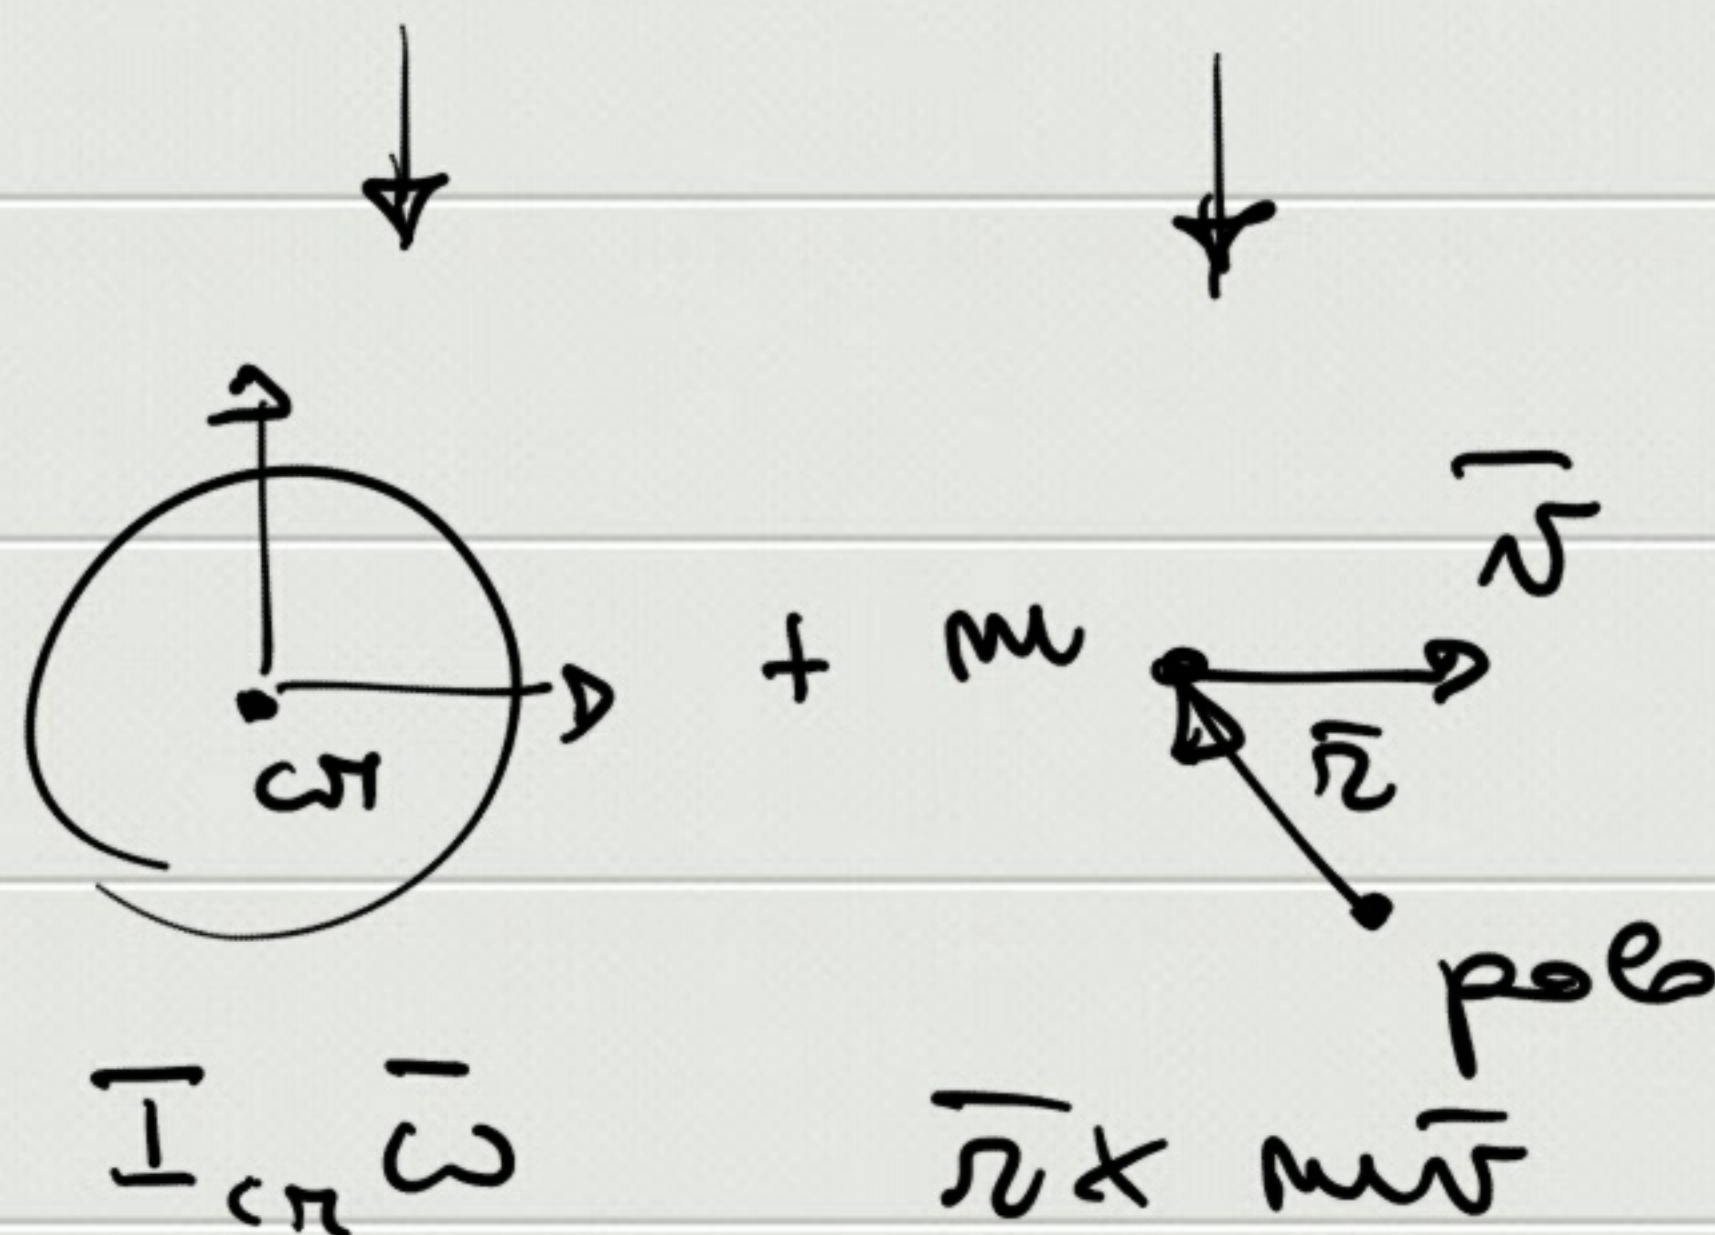 v̅
+ m
CM
r̅
polo
I̅_CM ω̅
r̅ × m v̅